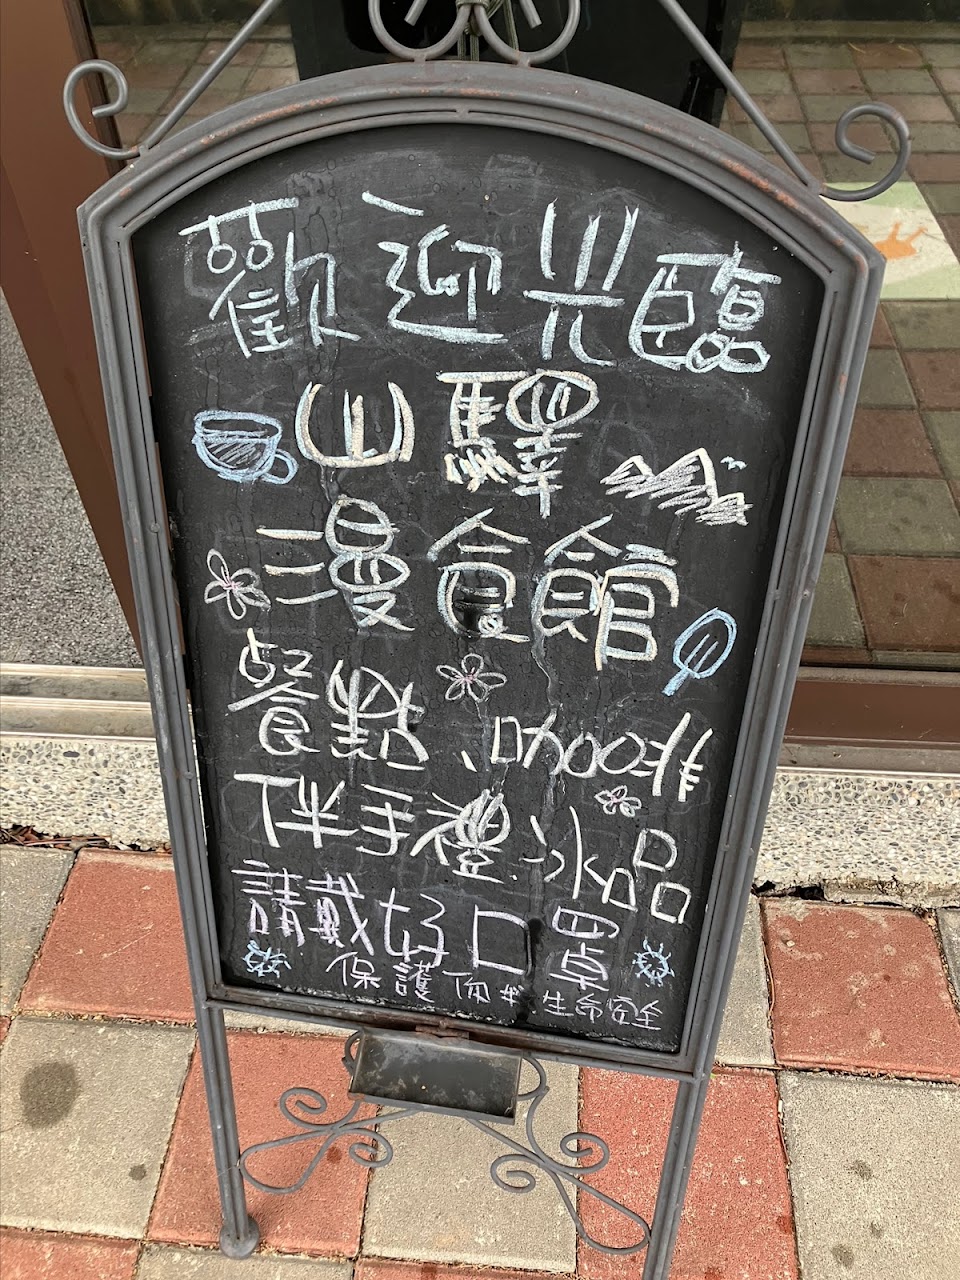 歡迎光臨
山驛
漫食館
餐點、咖啡
伴手禮.冰品
請戴好口罩
保護 生命安全